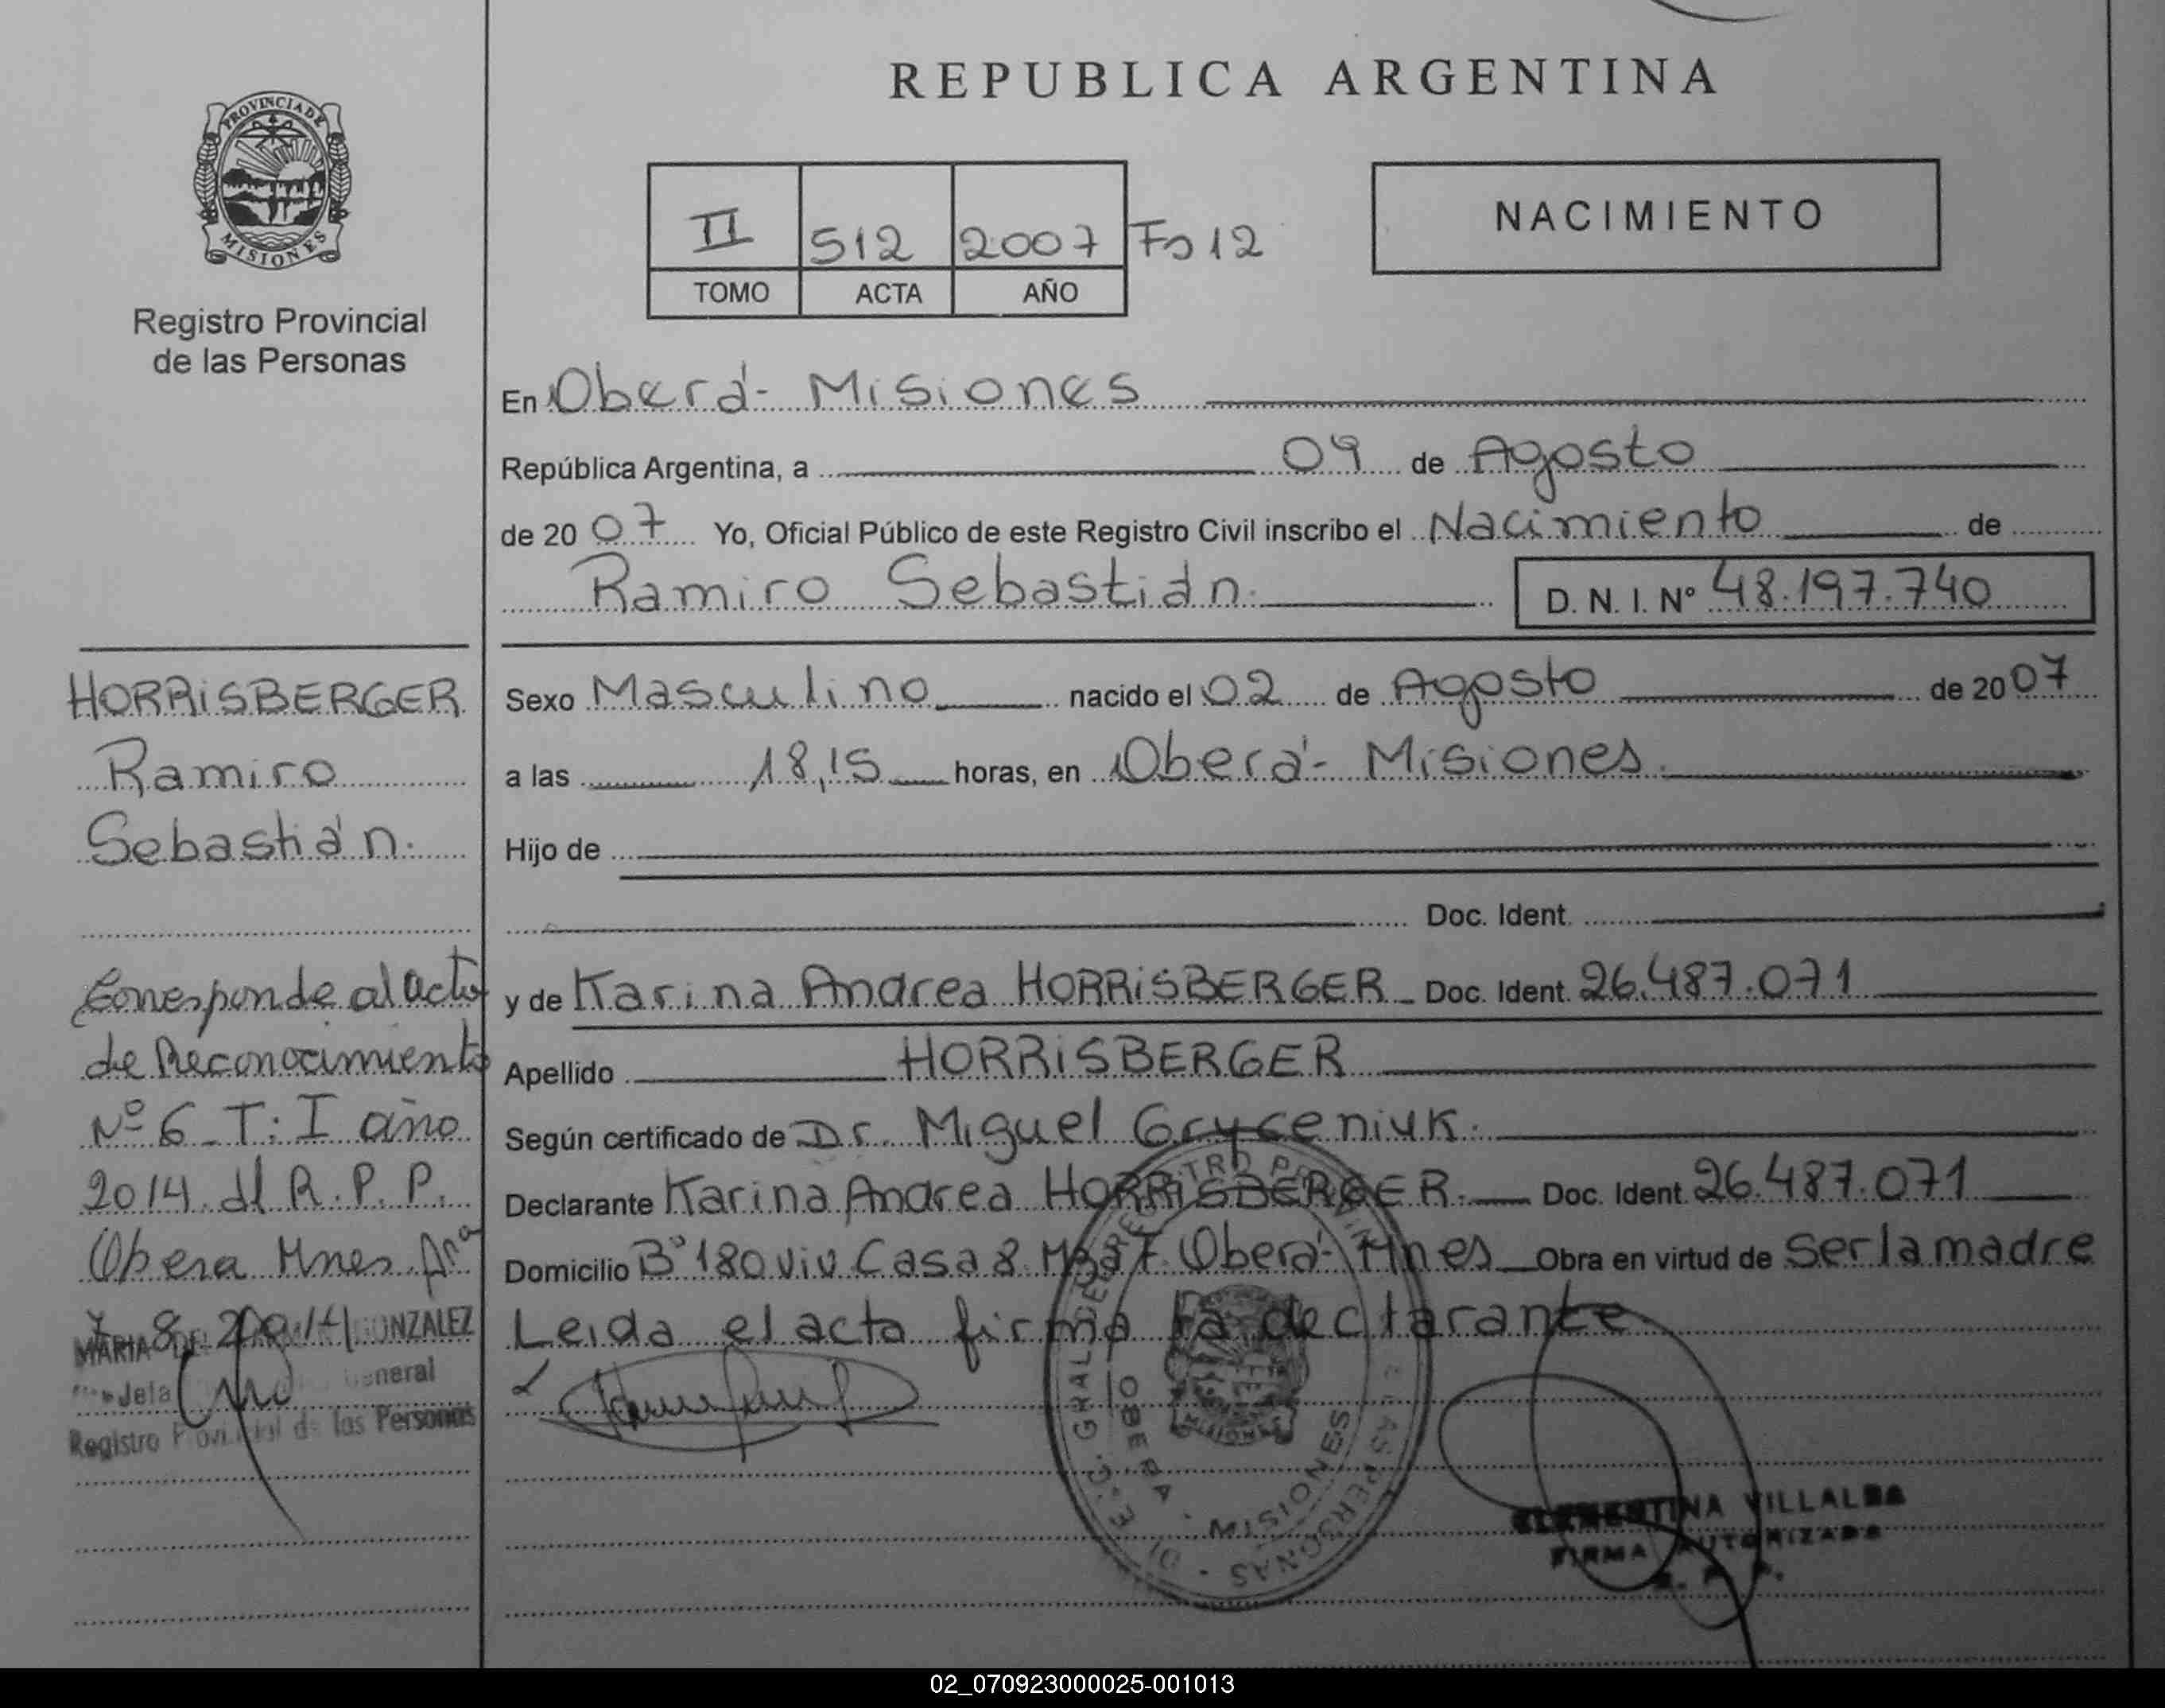 REPUBLICA ARGENTINA
PROVINCIA DE
MISIONES
Registro Provincial
de las Personas
II 512 2007 Fo 12
TOMO ACTA AÑO
NACIMIENTO
En Oberá- Misiones
República Argentina, a 09 de Agosto
de 20 07 Yo, Oficial Público de este Registro Civil inscribo el Nacimiento de
Ramiro Sebastián. D. N. I. Nº 48.197.740
Sexo Masculino nacido el 02 de Agosto de 20 07
a las 18,15 horas, en Oberá- Misiones.
Hijo de
Doc. Ident.
y de Karina Andrea HORRiSBERGER Doc. Ident. 26.487.071
Apellido HORRiSBERGER
Según certificado de Dr. Miguel Gryceniuk.
Declarante Karina Andrea HORRiSBERGER. Doc. Ident. 26.487.071
Domicilio Bº 180 viv Casa 8 Mza 7 Oberá- Mnes Obra en virtud de Ser la madre
Leida el acta firma la declarante
HORRiSBERGER
Ramiro
Sebastián.
Corresponde al acta
de Reconocimiento
Nº 6 T: I año
2014 dl R. P. P.
Obera Mnes. Ara
7 8 2014
MARIA DEL GONZALEZ
Jefa General
Registro Provincial de las Personas
OBERA - MISIONES
CLEMENTINA VILLALBA
FIRMA AUTORIZADA
02_070923000025-001013